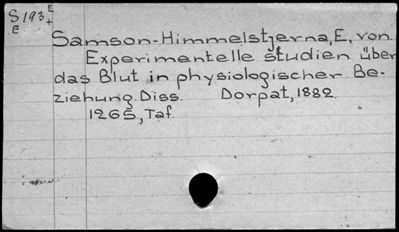 S193 E
E +
Samson-Himmelstjerna, E, von.
Experimentelle studien über
das Blut in physiologischer Be-
ziehung. Diss. Dorpat, 1882.
1265, Taf.